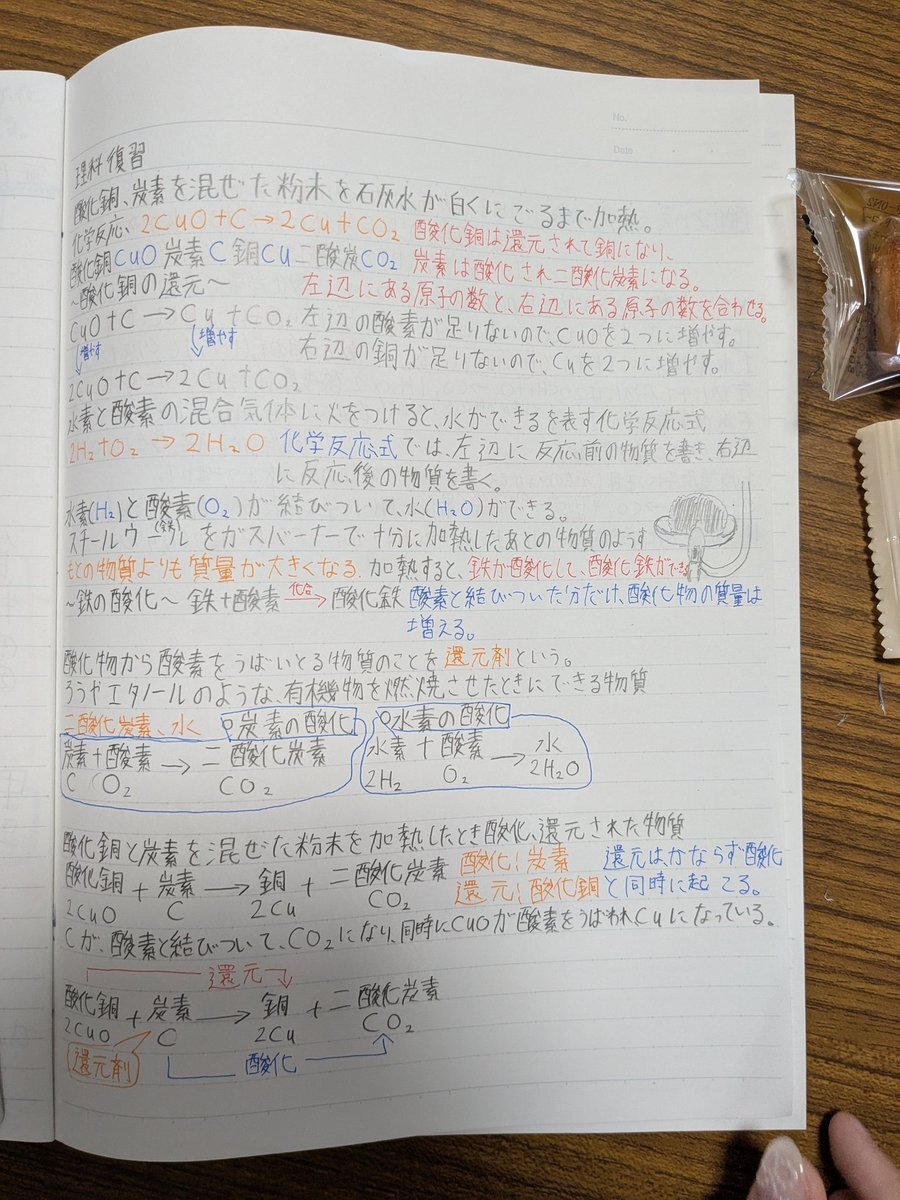 No.
Date
理科復習
酸化銅、炭素を混ぜた粉末を石灰水が白くにごるまで加熱。
化学反応、2CuO+C→2Cu+CO₂ 酸化銅は還元されて銅になり、
酸化銅CuO 炭素C 銅Cu 二酸炭CO₂ 炭素は酸化され二酸化炭素になる。
〜酸化銅の還元〜 左辺にある原子の数と、右辺にある原子の数を合わせる。
CuO+C→Cu+CO₂ 左辺の酸素が足りないので、CuOを2つに増やす。
↓増やす ↓増やす 右辺の銅が足りないので、Cuを2つに増やす。
2CuO+C→2Cu+CO₂
水素と酸素の混合気体に火をつけると、水ができるを表す化学反応式
2H₂+O₂→2H₂O 化学反応式では、左辺に反応前の物質を書き、右辺
に反応後の物質を書く。
水素(H₂)と酸素(O₂)が結びついて、水(H₂O)ができる。
スチールウール(鉄)をガスバーナーで十分に加熱したあとの物質のようす
もとの物質よりも質量が大きくなる。加熱すると、鉄が酸化して、酸化鉄ができる
〜鉄の酸化〜 鉄+酸素 化合→ 酸化鉄 酸素と結びついた分だけ、酸化物の質量は
増える。
酸化物から酸素をうばいとる物質のことを還元剤という。
ろうやエタノールのような、有機物を燃焼させたときにできる物質
二酸化炭素、水 ○炭素の酸化 ○水素の酸化
炭素+酸素→二酸化炭素 水素+酸素→水
C O₂ CO₂ 2H₂ O₂ 2H₂O
酸化銅と炭素を混ぜた粉末を加熱したとき酸化、還元された物質
酸化銅+炭素→銅+二酸化炭素 酸化:炭素 還元は、かならず酸化
2CuO C 2Cu CO₂ 還元:酸化銅 と同時に起こる。
Cが、酸素と結びついて、CO₂になり、同時にCuOが酸素をうばわれCuになっている。
還元
酸化銅+炭素→銅+二酸化炭素
2CuO C 2Cu CO₂
還元剤 酸化